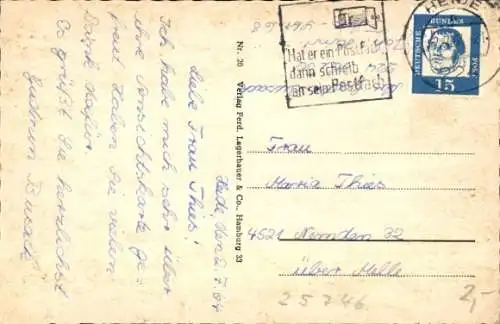 Heide, den 2.7.64
Liebe Frau Thies!
Ich habe mich sehr über
ihre Ansichtskarte ge-
freut. Haben Sie vielen
Dank dafür.
Es grüßt Sie herzlichst
Gudrun
Nr. 20 Verlag Ferd. Lagerbauer & Co., Hamburg 33
Hat er ein Postfach
dann schreib
an sein Postfach
DEUTSCHE
BUNDES
POST
15
Frau
Maria Thies
4521 Nemden 32
über Melle
25746
2,-